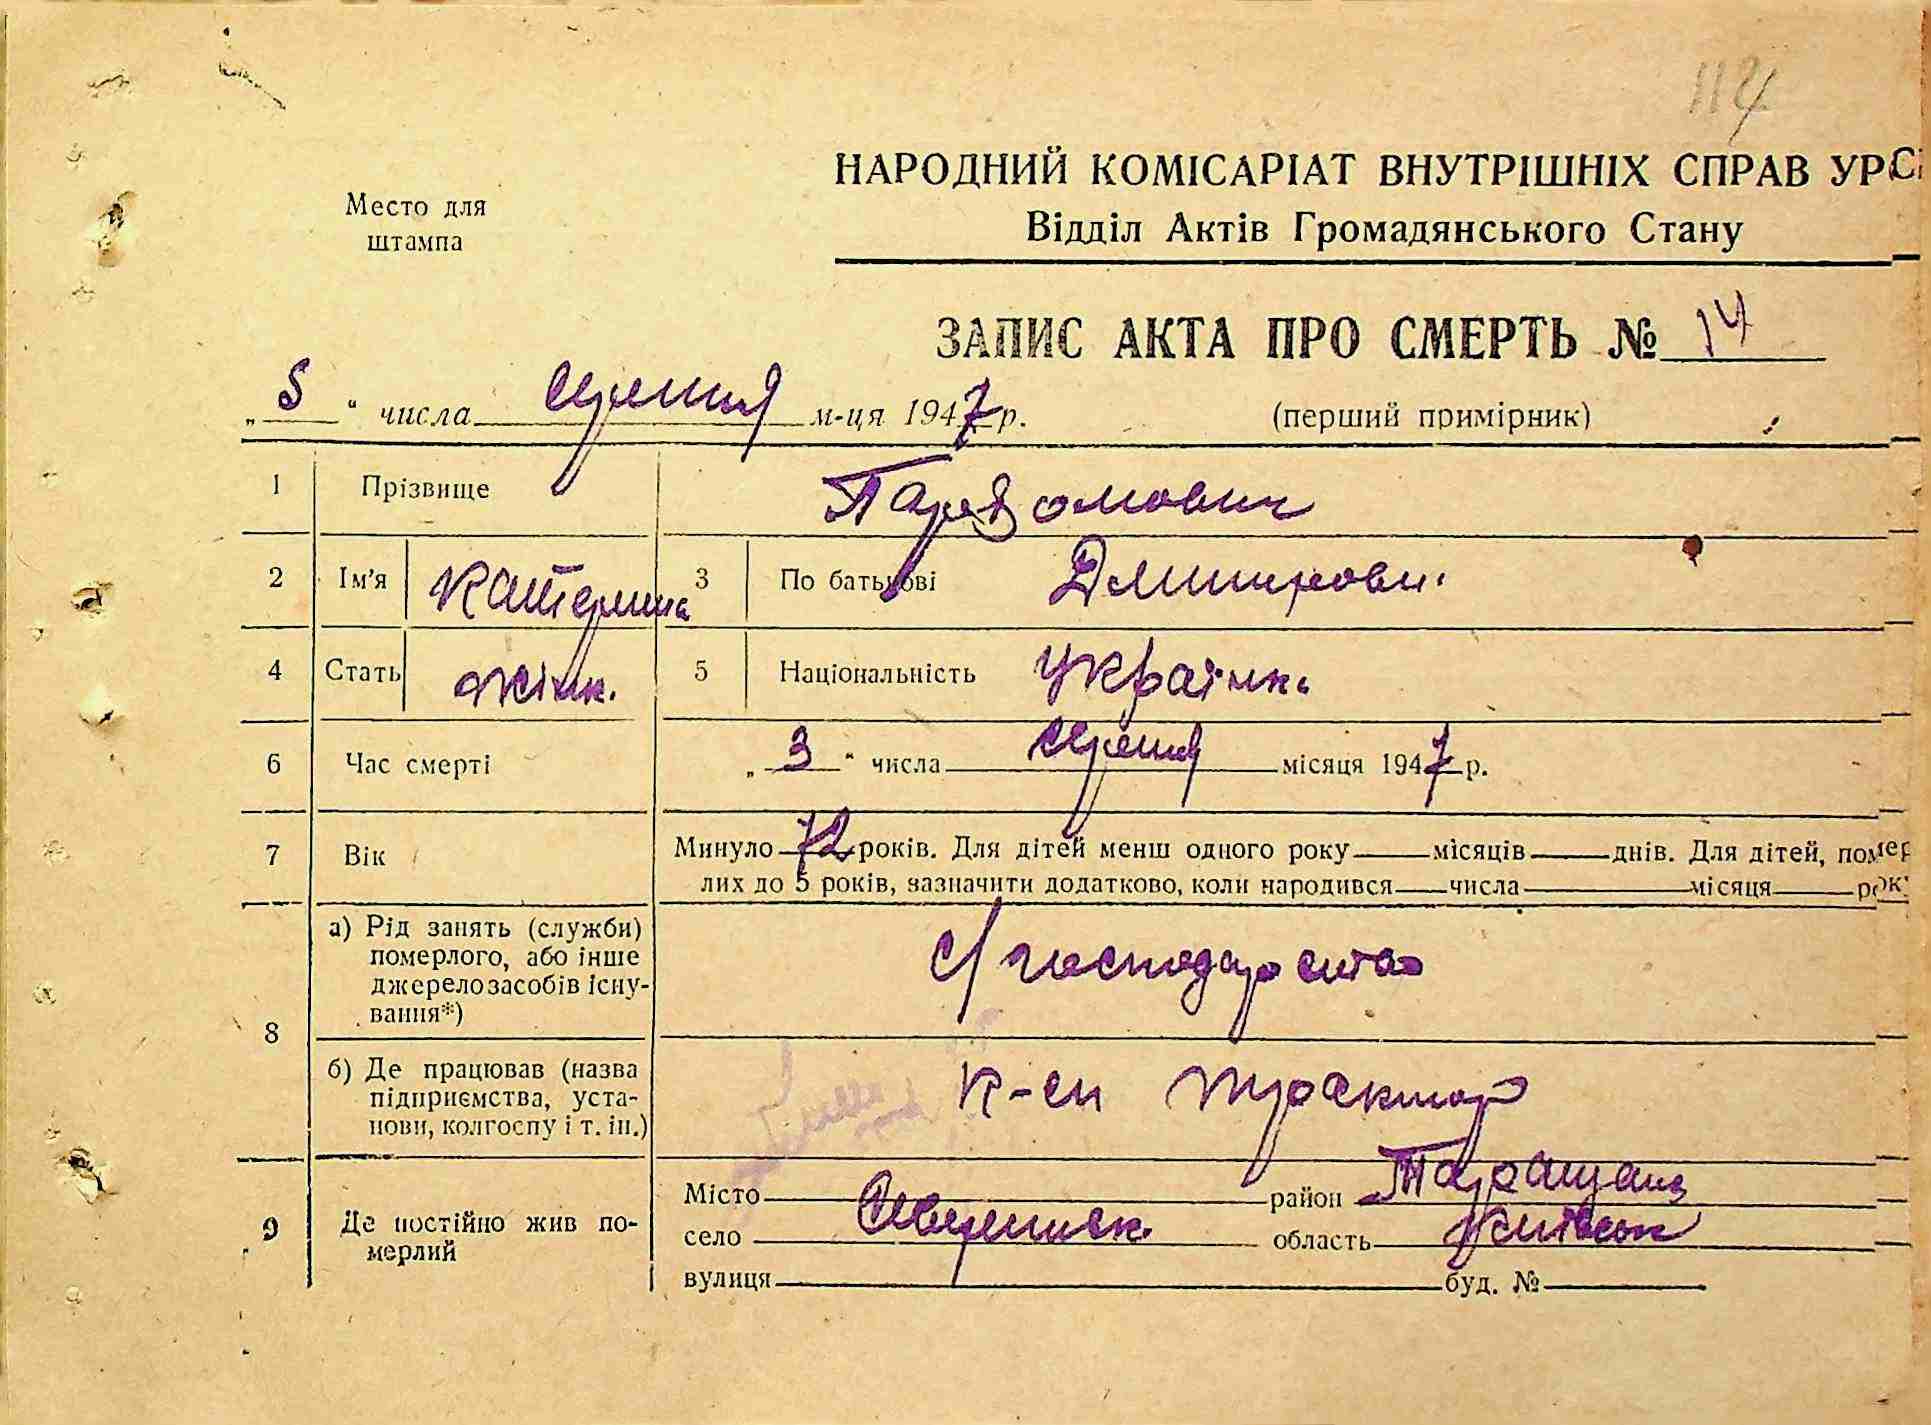 114
НАРОДНИЙ КОМІСАРІАТ ВНУТРІШНІХ СПРАВ УРС
Место для
штампа
Відділ Актів Громадянського Стану
ЗАПИС АКТА ПРО СМЕРТЬ № 14
„5“ числа серпня м-ця 1947 р. (перший примірник)
1 Прізвище Парфомович
2 Ім'я Катерина 3 По батькові Дмитрови.
4 Стать жінк. 5 Національність Українк.
6 Час смерті „3“ числа серпня місяця 1947 р.
7 Вік Минуло 72 років. Для дітей менш одного року місяців днів. Для дітей, помер
лих до 5 років, зазначити додатково, коли народився числа місяця рок
8 а) Рід занять (служби)
померлого, або інше
джерело засобів існу-
вання*) с/господарства
б) Де працював (назва
підприємства, уста-
нови, колгоспу і т. ін.) к-сп трактор
9 Де постійно жив по-
мерлий
Місто район Таращанс
село область Київськ
вулиця буд. №